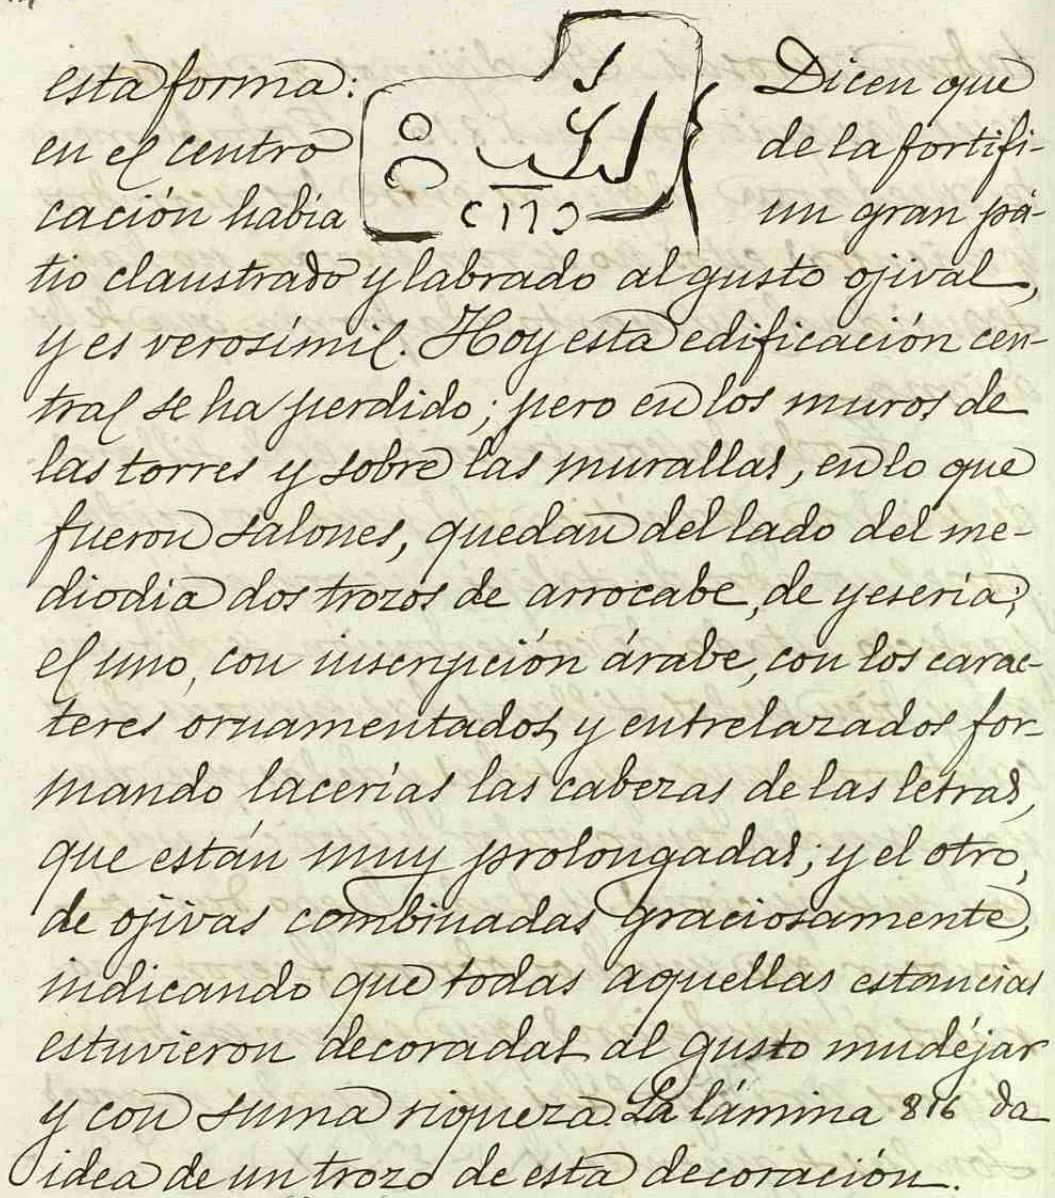 esta forma: Dicen que
en el centro de la fortifi-
cación había un gran pá-
tio claustrado y labrado al gusto ojival,
y es verosímil. Hoy esta edificación cen-
tral se ha perdido; pero en los muros de
las torres y sobre las murallas, en lo que
fueron salones, quedan del lado del me-
diodia dos trozos de arrocabe, de yesería;
el uno, con inscripción árabe, con los carac-
teres ornamentados, y entrelazados for-
mando lacerías las cabezas de las letras,
que están muy prolongadas; y el otro,
de ojivas combinadas graciosamente,
indicando que todas aquellas estancias
estuvieron decoradas al gusto mudéjar
y con suma riqueza. La lámina 816 da
idea de un trozo de esta decoración.